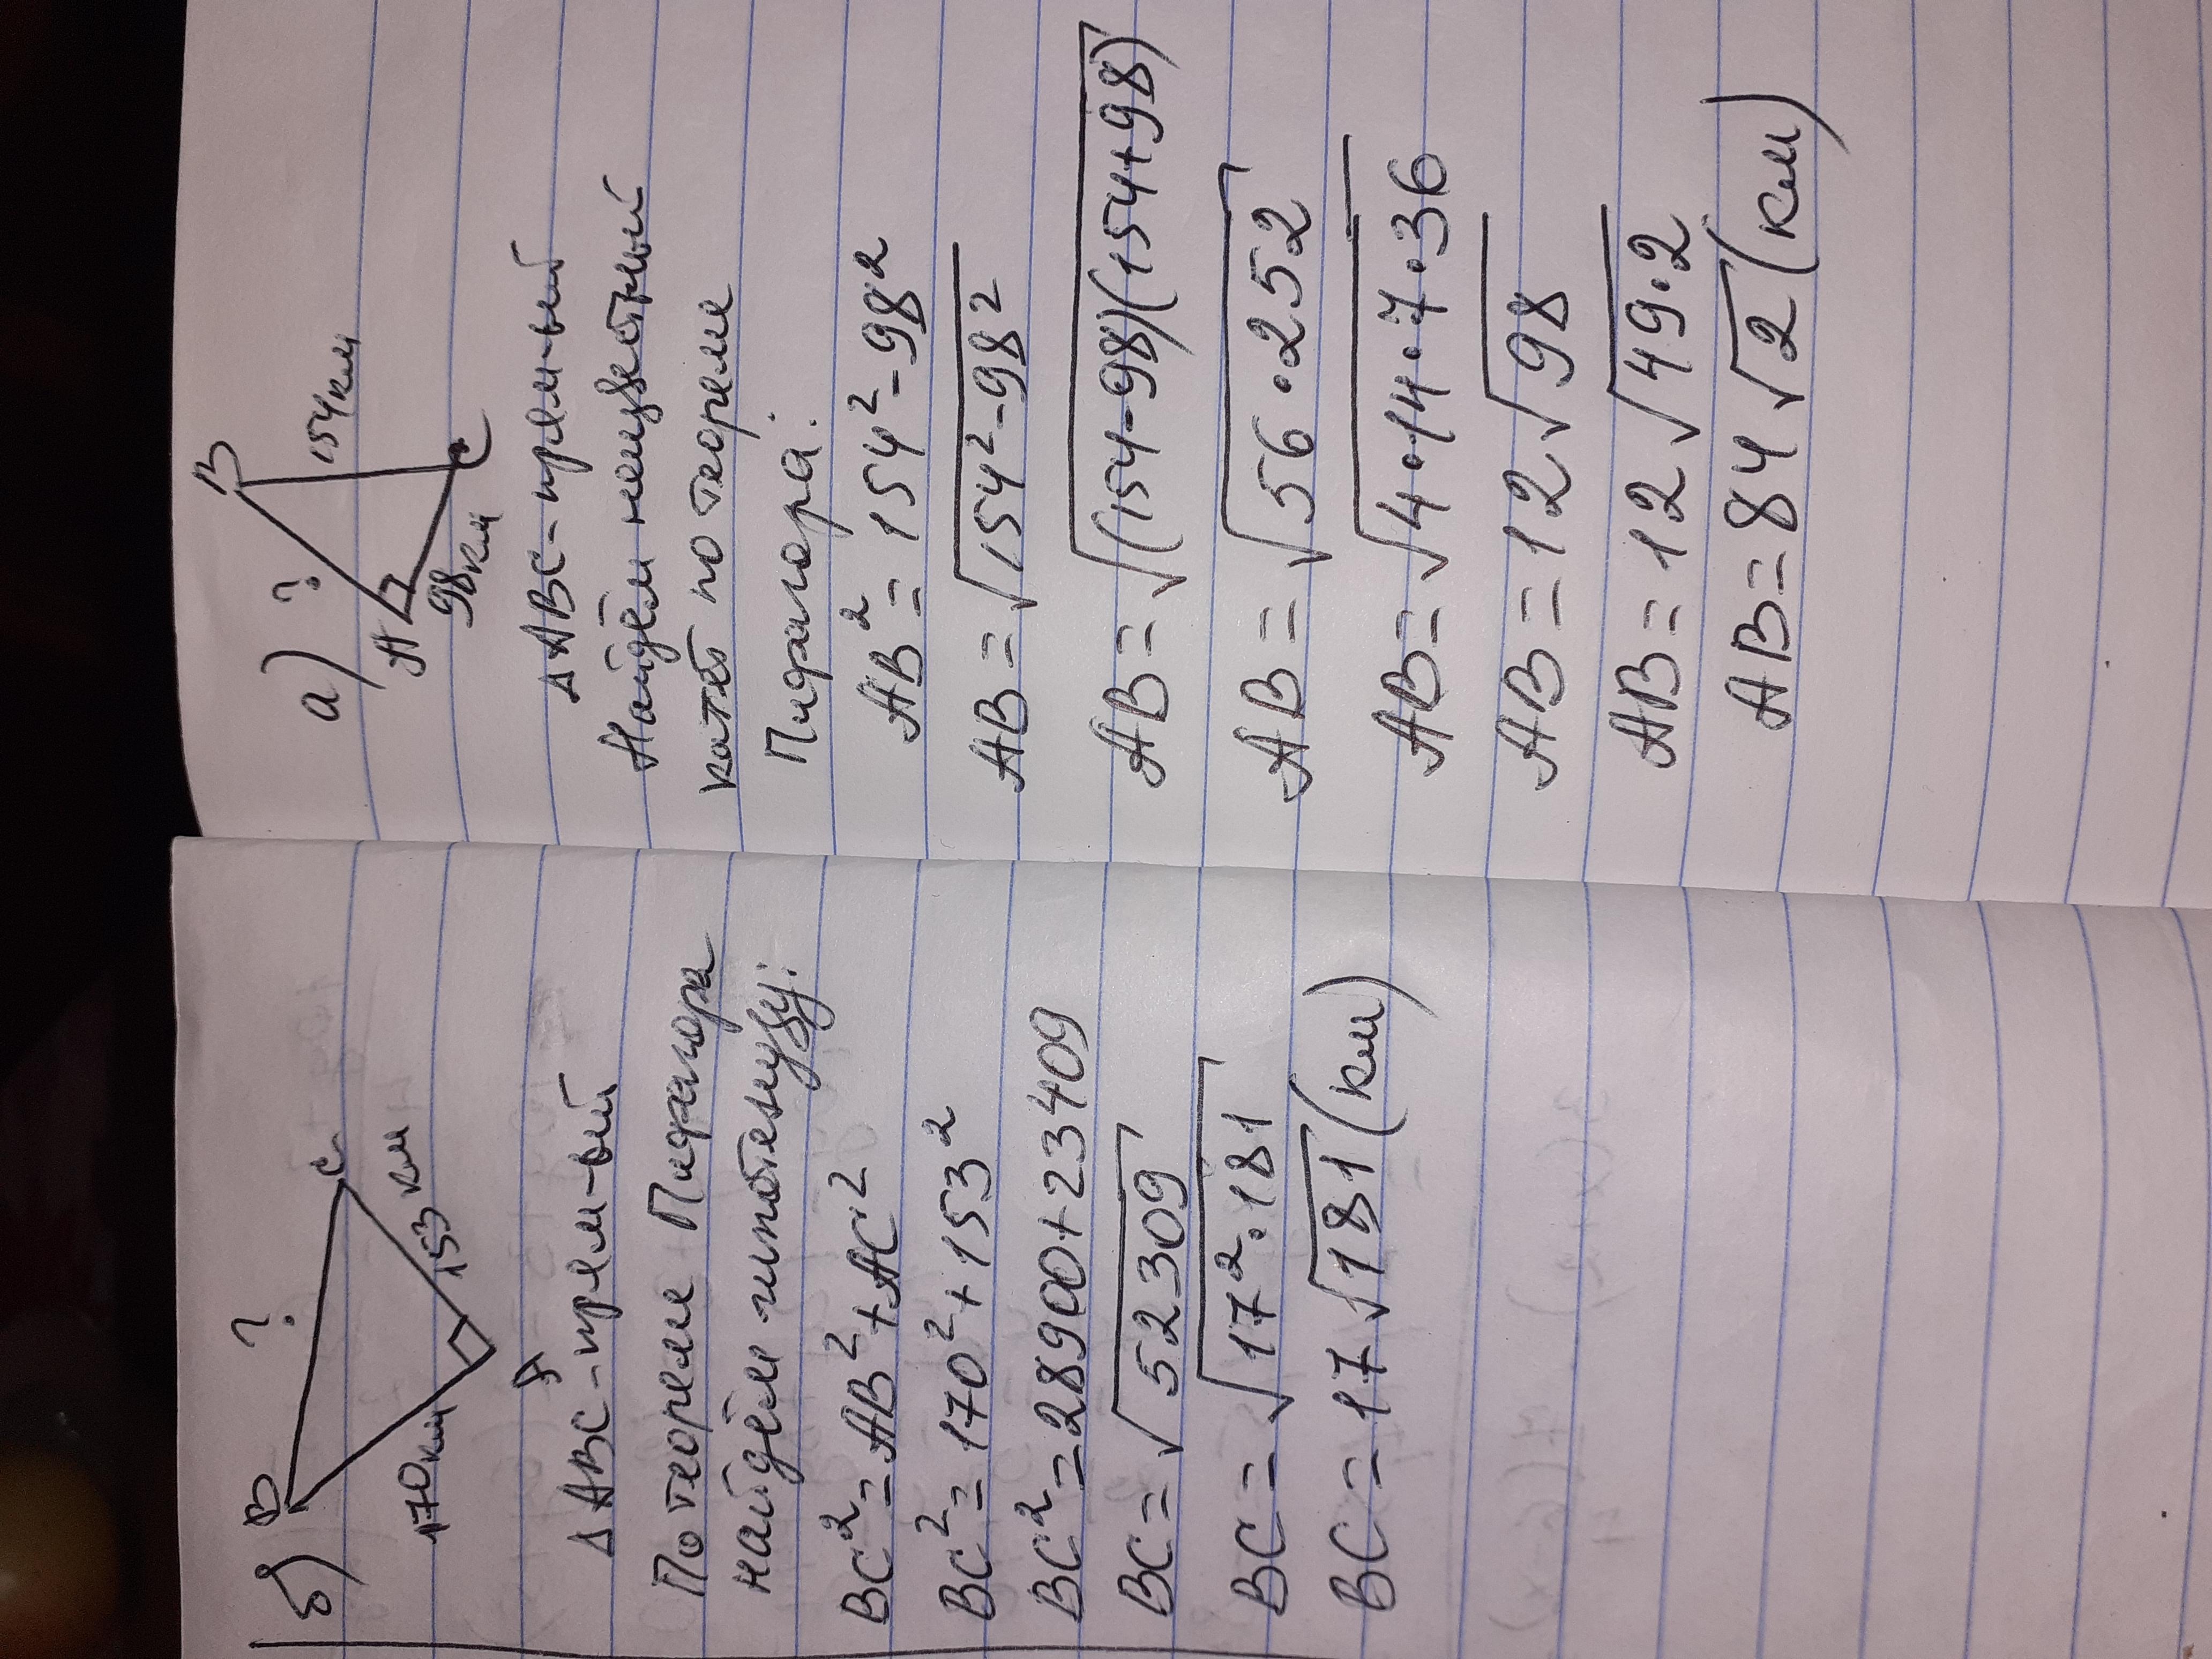 а)
?
B
154км
A
98км
C
△ABC-прям-ый
Найдём неизвестный
катет по теореме
Пифагора:
AB² = 154² - 98²
AB = √154² - 98²
AB = √(154-98)(154+98)
AB = √56 · 252
AB = √4·14·7·36
AB = 12√98
AB = 12√49·2
AB = 84√2 (км)
б)
B
?
C
170км
153 км
A
△ABC-прям-ый
По теореме Пифагора
найдём гипотенузу:
BC² = AB² + AC²
BC² = 170² + 153²
BC² = 28900 + 23409
BC = √52309
BC = √17² · 181
BC = 17√181 (км)